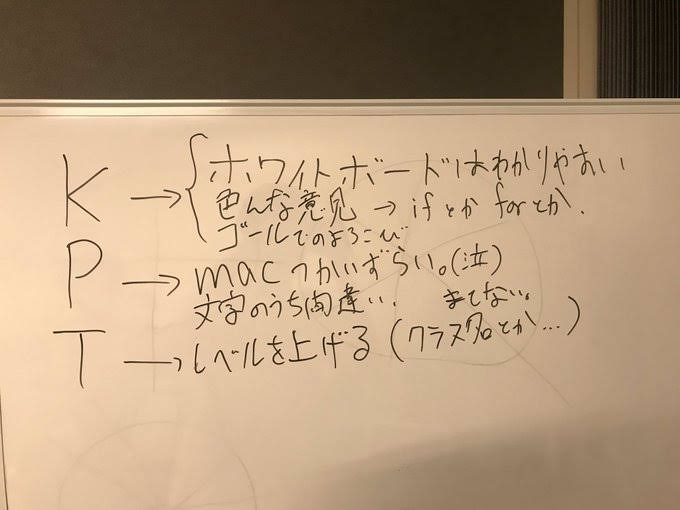 K → ホワイトボードはわかりやすい
色んな意見 → ifとか forとか.
ゴールでのよろこび
P → macつかいずらい。(泣)
文字のうち間違い. まてない。
T → レベルを上げる (クラス名とか...)